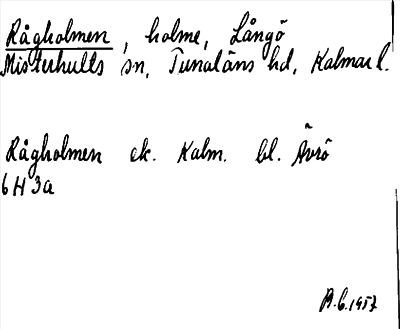 Rågholmen, holme, Långö
Misterhults sn, Tunaläns hd, Kalmar l.
Rågholmen ek. Kalm. bl. Ävrö
6H3a
B.C.1957